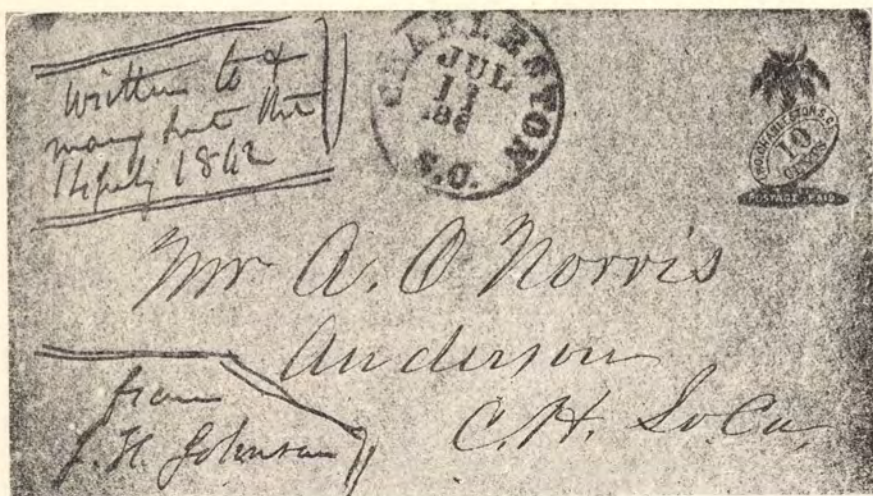 Written to &
many
July 1862
CHARLESTON
JUL
11
186
S.C.
P.O. CHARLESTON, S.C.
10
CENTS
POSTAGE PAID
Mr A. O Norris
Anderson
C. H. So. Ca.
from
J. H. Johnson